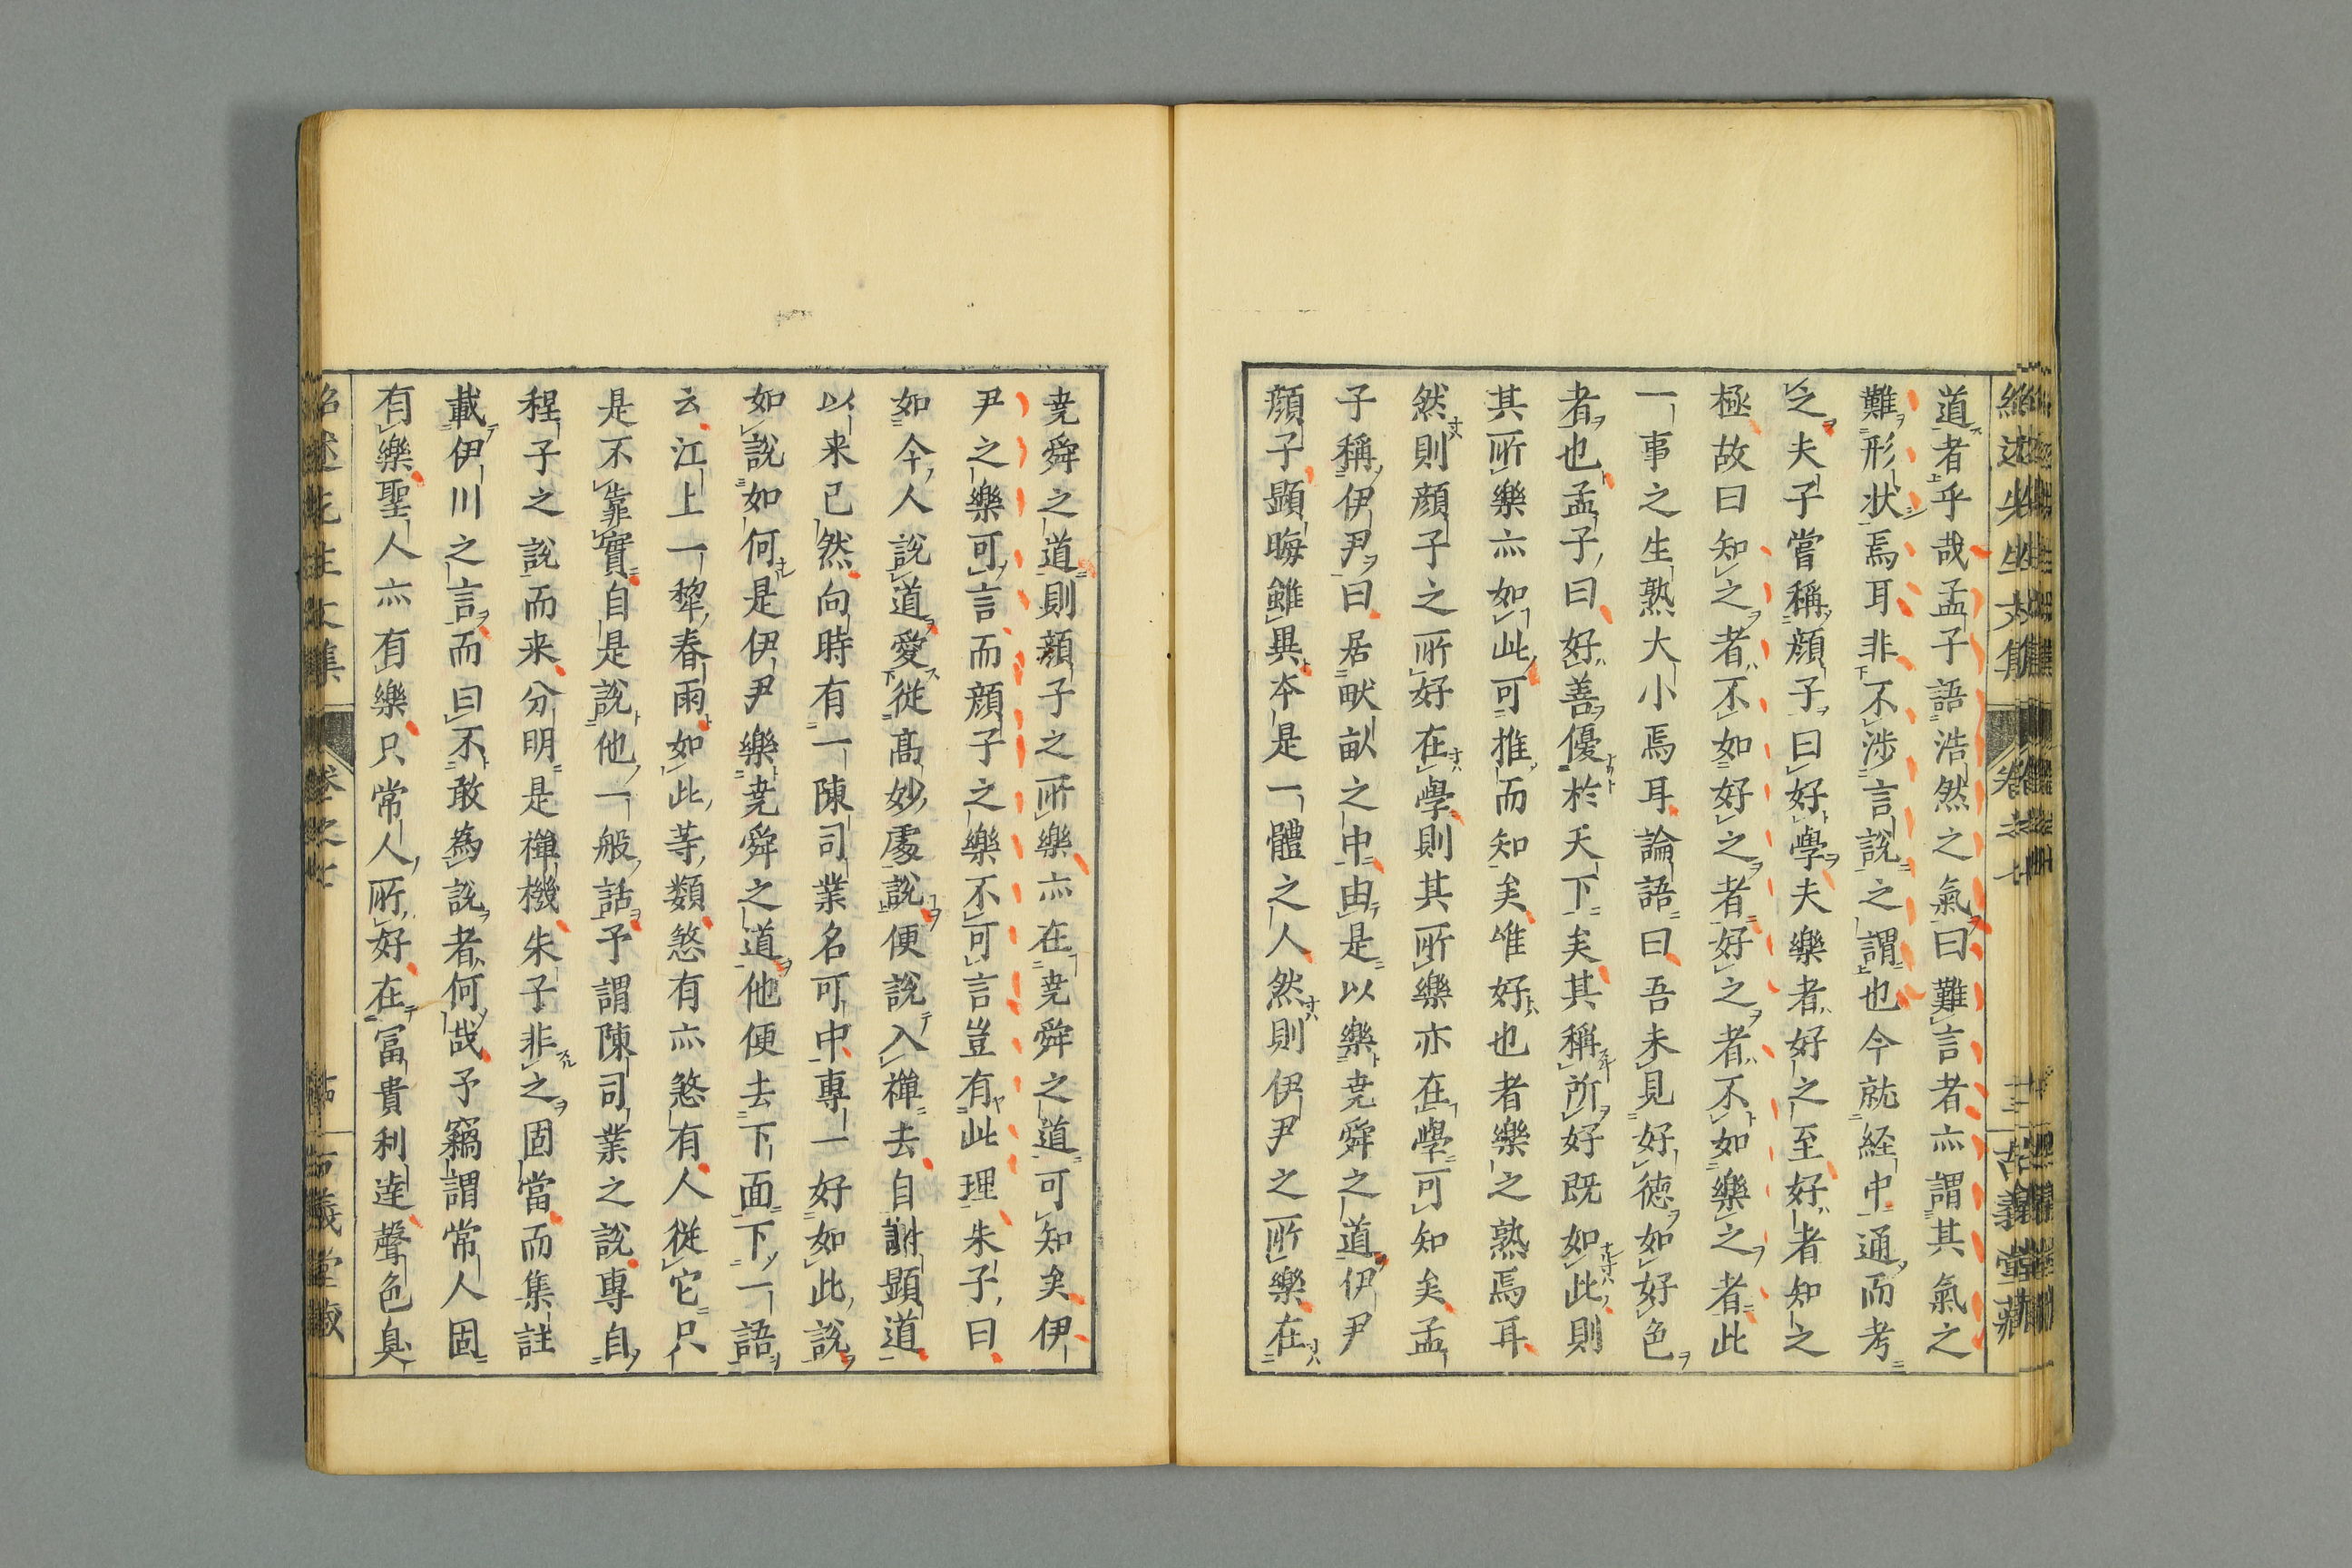 道者乎哉孟子語浩然之氣曰難言者亦謂其氣之
難形状焉耳非不渉言說之謂也今就経中通而考
之夫子嘗稱顔子曰好學夫樂者好之至好者知之
極故曰知之者不如好之者好之者不如樂之者此
一事之生熟大小焉耳論語曰吾未見好徳如好色
者也孟子曰好善優於天下矣其稱所好既如此則
其所樂亦如此可推而知矣唯好也者樂之熟焉耳
然則顔子之所好在學則其所樂亦在學可知矣孟
子稱伊尹曰居畎畝之中由是以樂尭舜之道伊尹
顔子顕晦雖異夲是一體之人然則伊尹之所樂在
尭舜之道則顔子之所樂亦在尭舜之道可知矣伊
尹之樂可言而顔子之樂不可言豈有此理朱子曰
如今人說道愛從髙妙處說便說入禅去自謝顕道
以来已然向時有一陳司業名可中專一好如此說
如說如何是伊尹樂尭舜之道他便去下面下一語
云江上一犂春雨如此等類煞有亦煞有人従它只
是不靠實自是說他一般話予謂陳司業之說專自
程子之說而来分明是禅機朱子非之固當而集註
載伊川之言而曰不敢為說者何哉予竊謂常人固
有樂聖人亦有樂只常人所好在冨貴利達聲色臭
紹述先生文集 卷之七 古義堂蔵